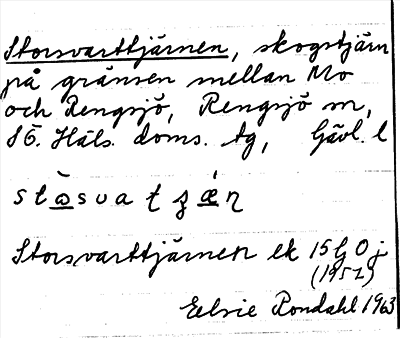 Storsvarttjärnen, skogstjärn
på gränsen mellan Mo
och Rengsjö, Rengsjö sn,
SÖ. Häls. doms. tg, Gävl. l
Storsvarttjärnen ek 15G 0j
(1952)
Elsie Rondahl 1963